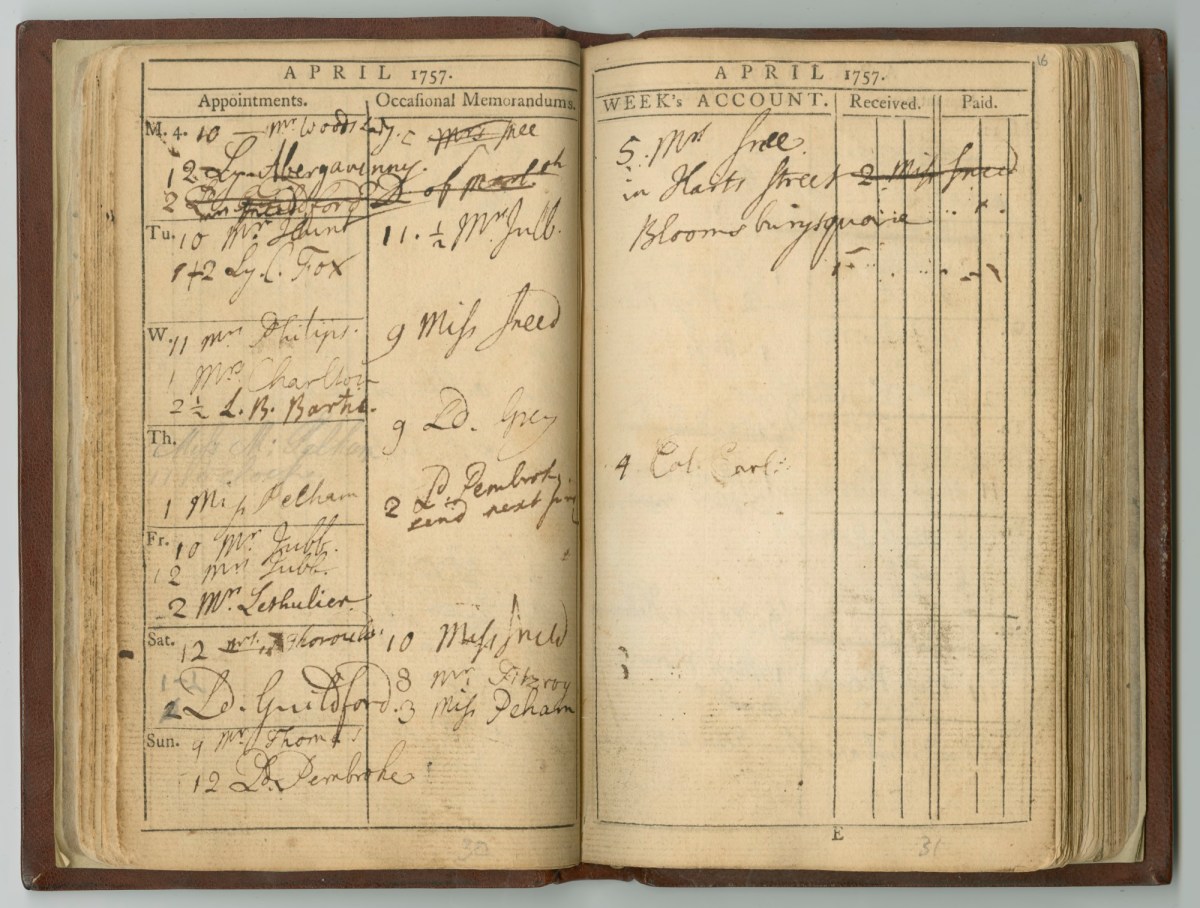 APRIL 1757.
Appointments. Occasional Memorandums.
M. 4. 10 — Mr Woods Lady. 5 Mrs Snee
12 Ly. Abergavenny.
2 D of
Tu. 10 Mr Hunt 11. ½ Mr Jubb.
1+2 Ly. C. Fox
W. 11 Mrs Philips. 9 Miss Sneed
1 Mrs Charlton
2 ½ L. B. Barte.
9 Ld. Grey
Th. Miss
1 Miss Pelham
Ld Pembroke
2 send next
Fr. 10 Mr Jubb.
12 Mrs Jubb.
2 Mr. Lethulier.
Sat. 12 Mrs. 10 Miss Sneed
8 Mr. Fitzroy
2 Ld. Guildford. 3 Miss Peham
Sun. 9 Mr Thomas
12 Ld. Pembroke
30
16
APRIL 1757.
WEEK's ACCOUNT. Received. Paid.
5. Mrs Snee
in Harts Street 2 Miss Sneed
Bloomsburysquare
4 Col. Carl
E
31